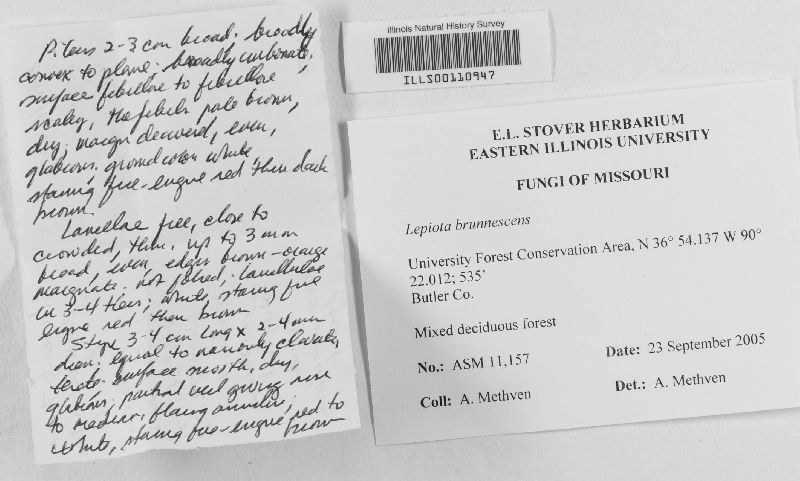 Pileus 2-3 cm broad, broadly
convex to plane; broadly umbonate,
surface fibrillose to fibrillose
scaley, the fibrils pale brown,
dry, margin decurved, even,
glabrous, ground color white
staining fire-engine red then dark
brown.
Lamellae free, close to
crowded, thin, up to 3 mm
broad, even, edges brown-orange
marginate, not forked, lamellulae
in 3-4 tiers; white, staining fire
engine red then brown
Stipe 3-4 cm long x 2-4 mm
diam, equal to narrowly clavate,
terete surface smooth, dry,
glabrous; partial veil giving rise
to median, flaring annulus;
white, staining fire-engine red to
brown
Illinois Natural History Survey
ILLS00110947
E.L. STOVER HERBARIUM
EASTERN ILLINOIS UNIVERSITY
FUNGI OF MISSOURI
Lepiota brunnescens
University Forest Conservation Area, N 36° 54.137 W 90°
22.012; 535'
Butler Co.
Mixed deciduous forest
No.: ASM 11,157 Date: 23 September 2005
Coll: A. Methven Det.: A. Methven